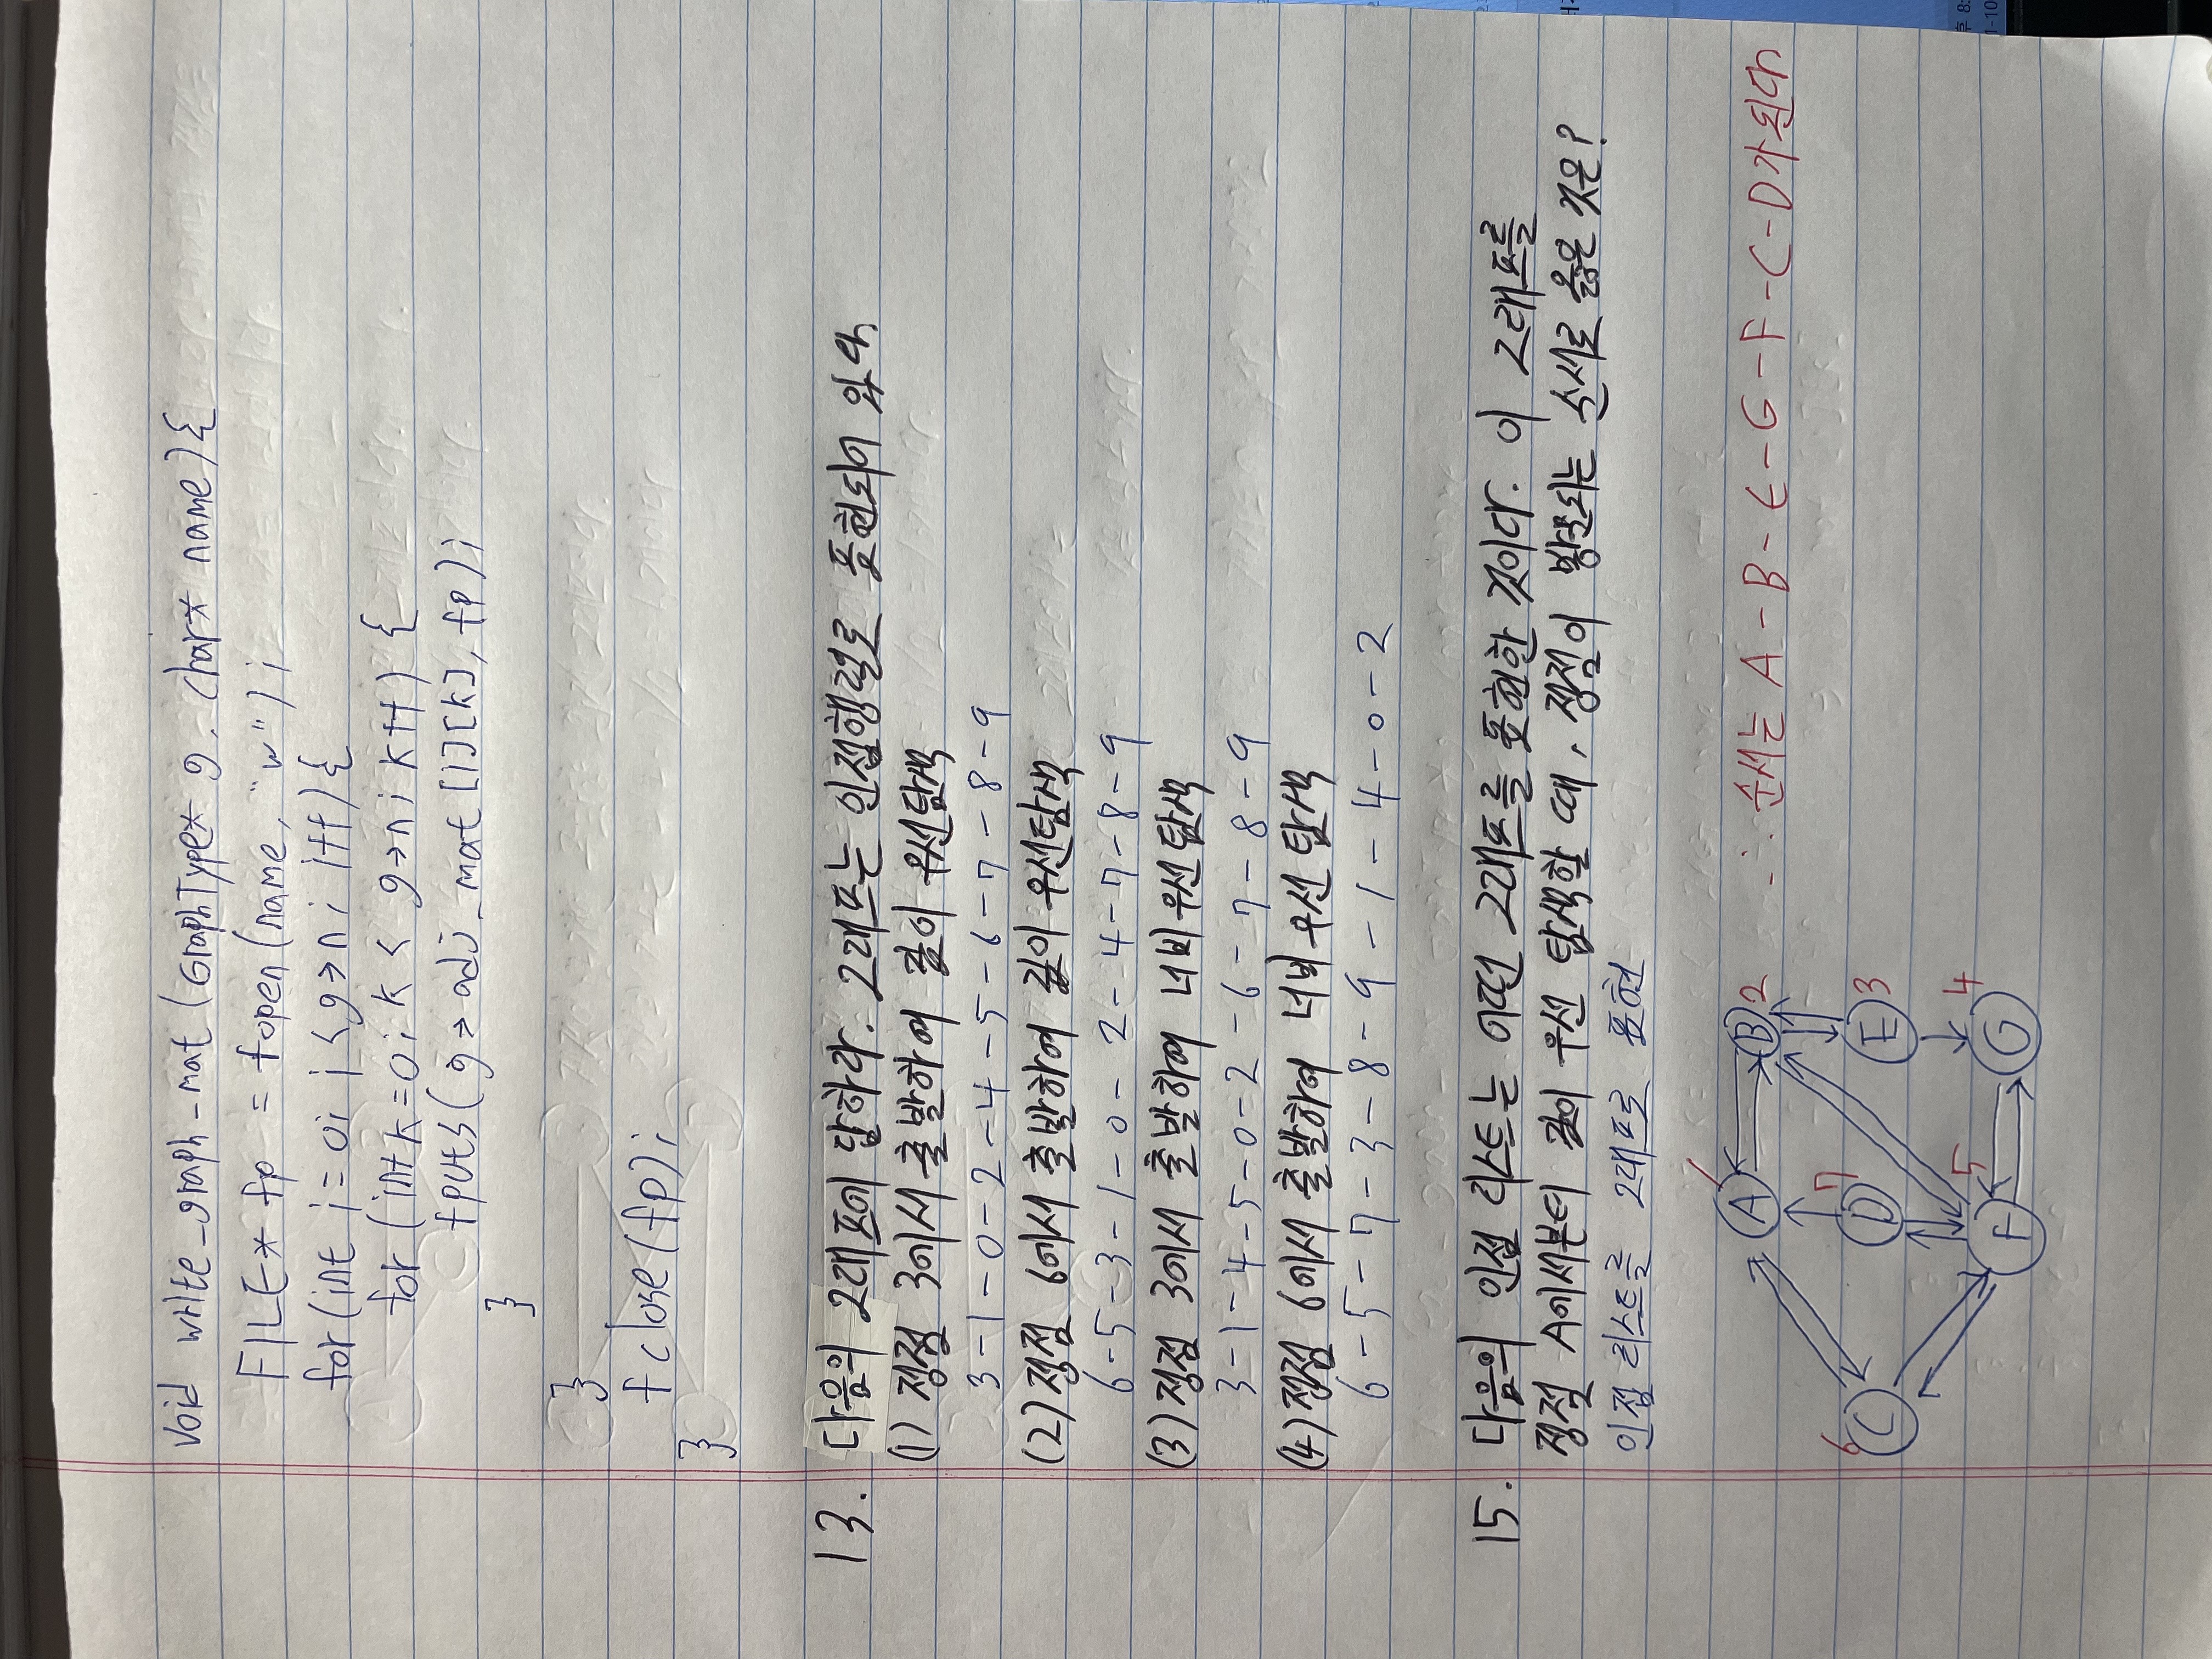 void write_graph_mat (GraphType* g, char* name){
FILE* fp = fopen(name, "w");
for(int i=0; i<g→n; i++){
for (int k=0; k < g→n; k++) {
fputs(g→adj_mat[i][k], fp);
}
}
fclose(fp);
}
13. 다음의 그래프에 답하라. 그래프는 인접행렬로 표현되어 있다
(1) 정점 3에서 출발하여 깊이 우선탐색
3-1-0-2-4-5-6-7-8-9
(2) 정점 6에서 출발하여 깊이 우선탐색
6-5-3-1-0-2-4-7-8-9
(3) 정점 3에서 출발하여 너비우선탐색
3-1-4-5-0-2-6-7-8-9
(4) 정점 6에서 출발하여 너비우선 탐색
6-5-7-3-8-9-1-4-0-2
15. 다음의 인접 리스트는 어떤 그래프를 표현한 것이다. 이 그래프를
정점 A에서부터 깊이 우선 탐색할 때, 정점이 방문되는 순서로 옳은 것은?
인접 리스트를 그래프로 표현
A 1 B 2 ∴ 순서는 A-B-E-G-F-C-D가 된다
C 6 D 7 E 3
F 5 G 4